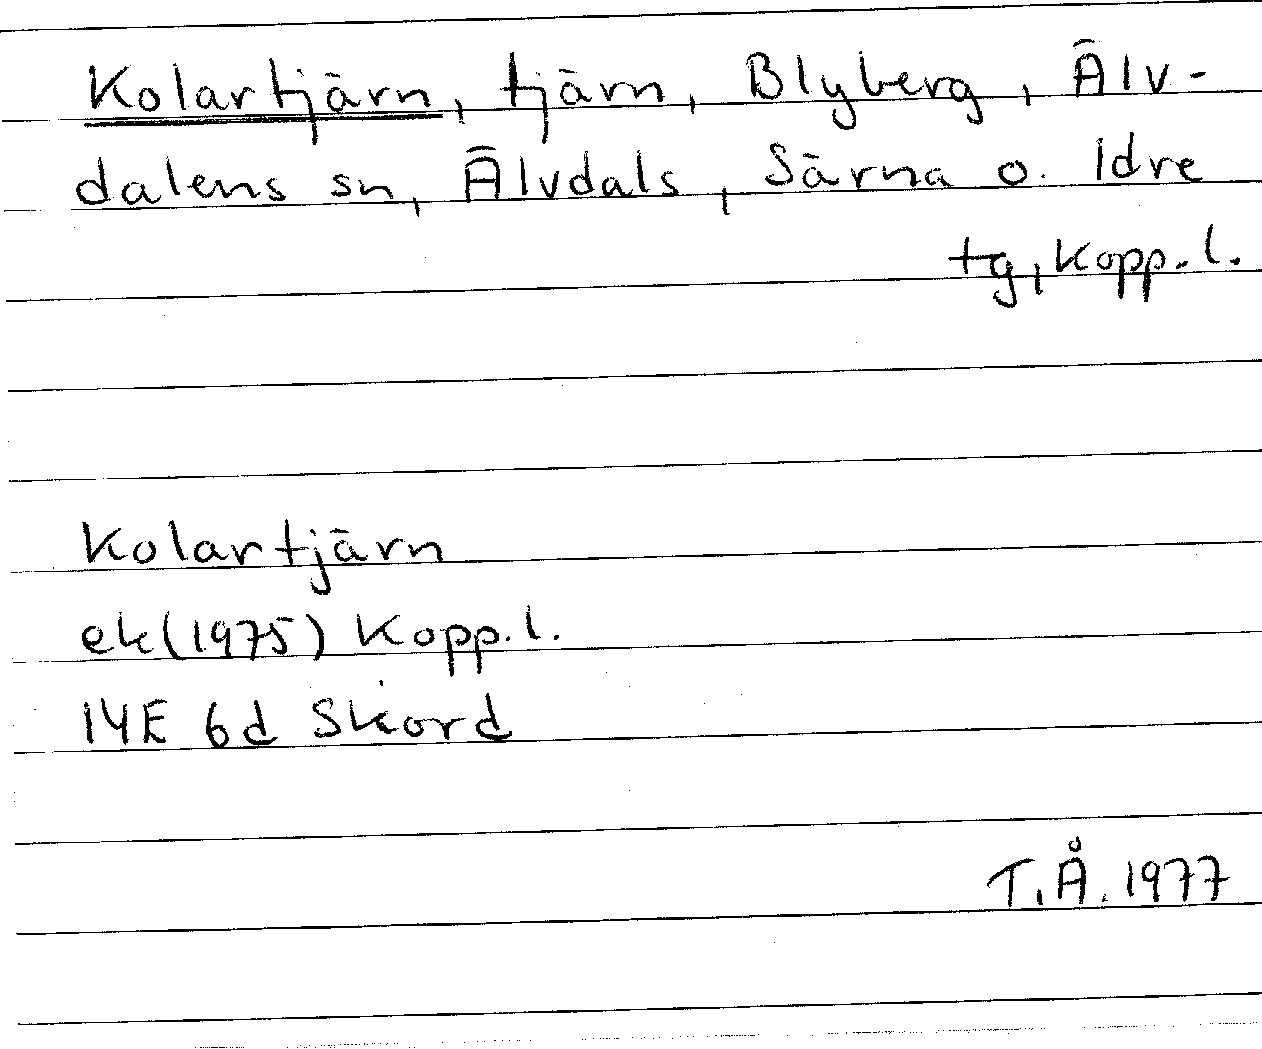 Kolartjärn, tjärn, Blyberg, Älv-
dalens sn, Älvdals, Särna o. Idre
tg, Kopp. l.
Kolartjärn
ek (1975) Kopp. l.
14E 6d Skord
T.Å. 1977